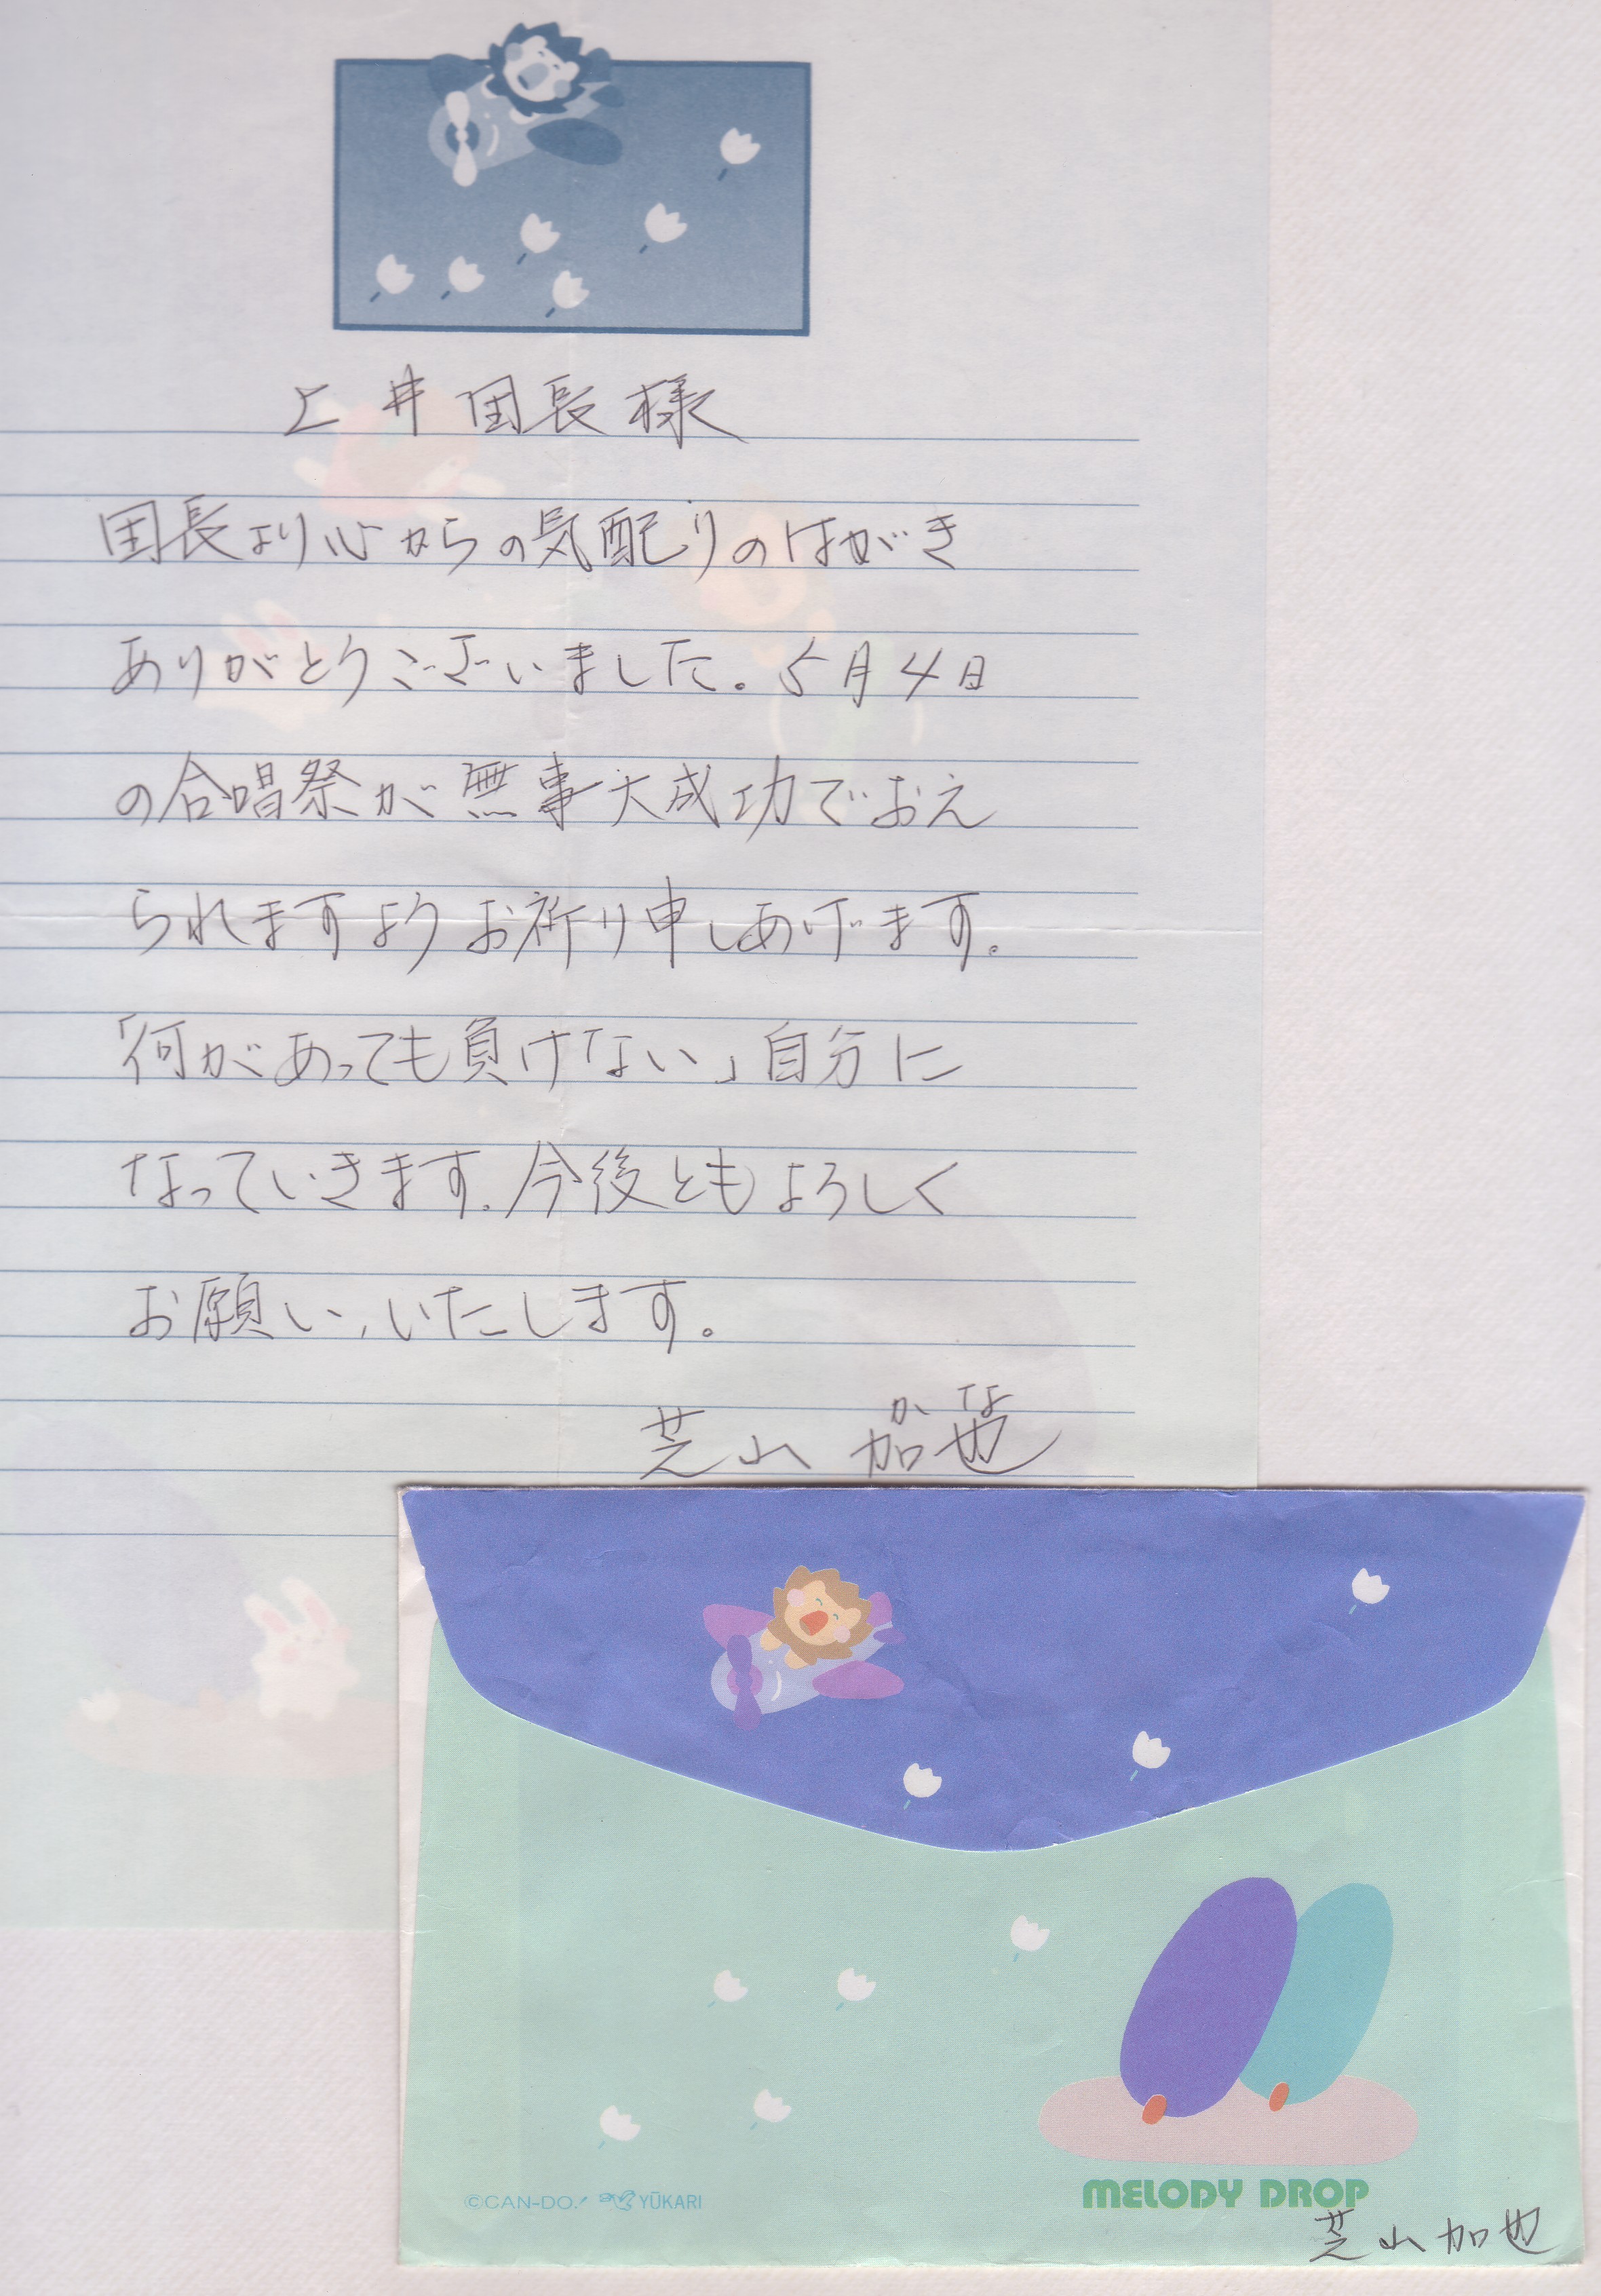 上井団長様
団長より心からの気配りのはがき
ありがとうございました。5月4日
の合唱祭が無事大成功でおえ
られますようお祈り申しあげます。
「何があっても負けない」自分に
なっていきます。今後ともよろしく
お願い、いたします。
かな
芝山 加也
©CAN-DO! YŪKARI
MELODY DROP
芝山加也